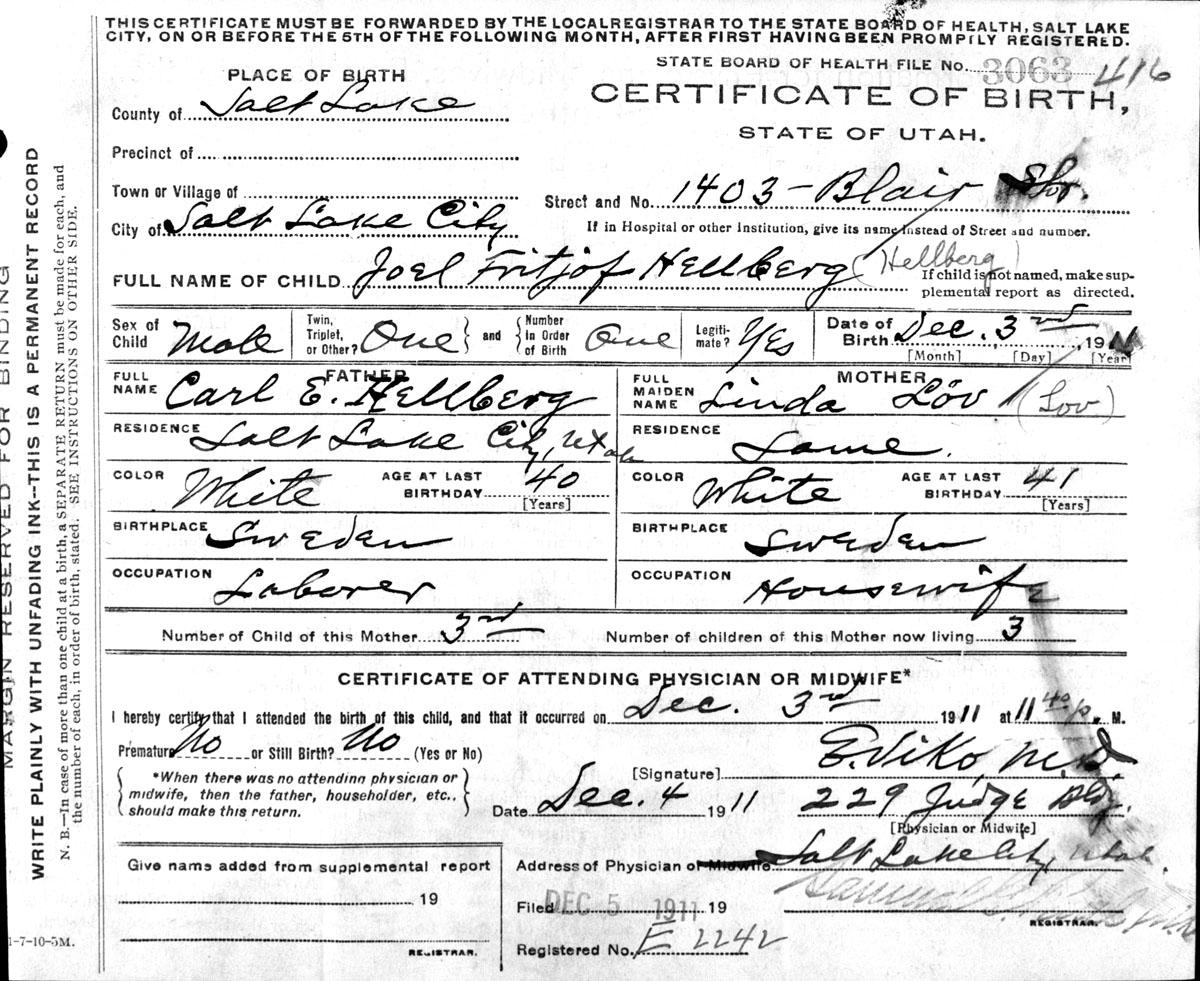 THIS CERTIFICATE MUST BE FORWARDED BY THE LOCAL REGISTRAR TO THE STATE BOARD OF HEALTH, SALT LAKE
CITY, ON OR BEFORE THE 5TH OF THE FOLLOWING MONTH, AFTER FIRST HAVING BEEN PROMPTLY REGISTERED.
STATE BOARD OF HEALTH FILE NO. 3063 416
PLACE OF BIRTH
CERTIFICATE OF BIRTH,
County of Salt Lake
STATE OF UTAH.
Precinct of
Town or Village of
Street and No. 1403 - Blair
City of Salt Lake City
If in Hospital or other Institution, give its name instead of Street and number.
FULL NAME OF CHILD Joel Fritjof Hellberg (Hellberg)
If child is not named, make sup-
plemental report as directed.
Sex of Child Male
Twin, Triplet, or Other? One
and
Number in Order of Birth One
Legiti-mate? Yes
Date of Birth Dec. 3rd 191
[Month] [Day] [Year]
FATHER
FULL NAME Carl E. Hellberg
RESIDENCE Salt Lake City, Utah
COLOR White AGE AT LAST BIRTHDAY 40
[Years]
BIRTHPLACE Sweden
OCCUPATION Laborer
MOTHER
FULL MAIDEN NAME Linda Löv (Lov)
RESIDENCE Same.
COLOR White AGE AT LAST BIRTHDAY 41
[Years]
BIRTHPLACE Sweden
OCCUPATION Housewife
Number of Child of this Mother 3rd Number of children of this Mother now living 3
CERTIFICATE OF ATTENDING PHYSICIAN OR MIDWIFE*
I hereby certify that I attended the birth of this child, and that it occurred on Dec. 3rd 1911 at 11 40/p. M.
Premature No or Still Birth? No (Yes or No)
*When there was no attending physician or
midwife, then the father, householder, etc.,
should make this return.
[Signature] E. Viko, M.D.
Date Dec. 4 1911 229 Judge Bldg.
[Physician or Midwife]
Address of Physician or Midwife Salt Lake City, Utah
Give name added from supplemental report
19
REGISTRAR.
Filed DEC 5 1911 19
REGISTRAR.
Registered No. E 2242
1-7-10-5M.
MARGIN RESERVED FOR BINDING
WRITE PLAINLY WITH UNFADING INK--THIS IS A PERMANENT RECORD
N. B.—In case of more than one child at a birth, a SEPARATE RETURN must be made for each, and
the number of each, in order of birth, stated. SEE INSTRUCTIONS ON OTHER SIDE.